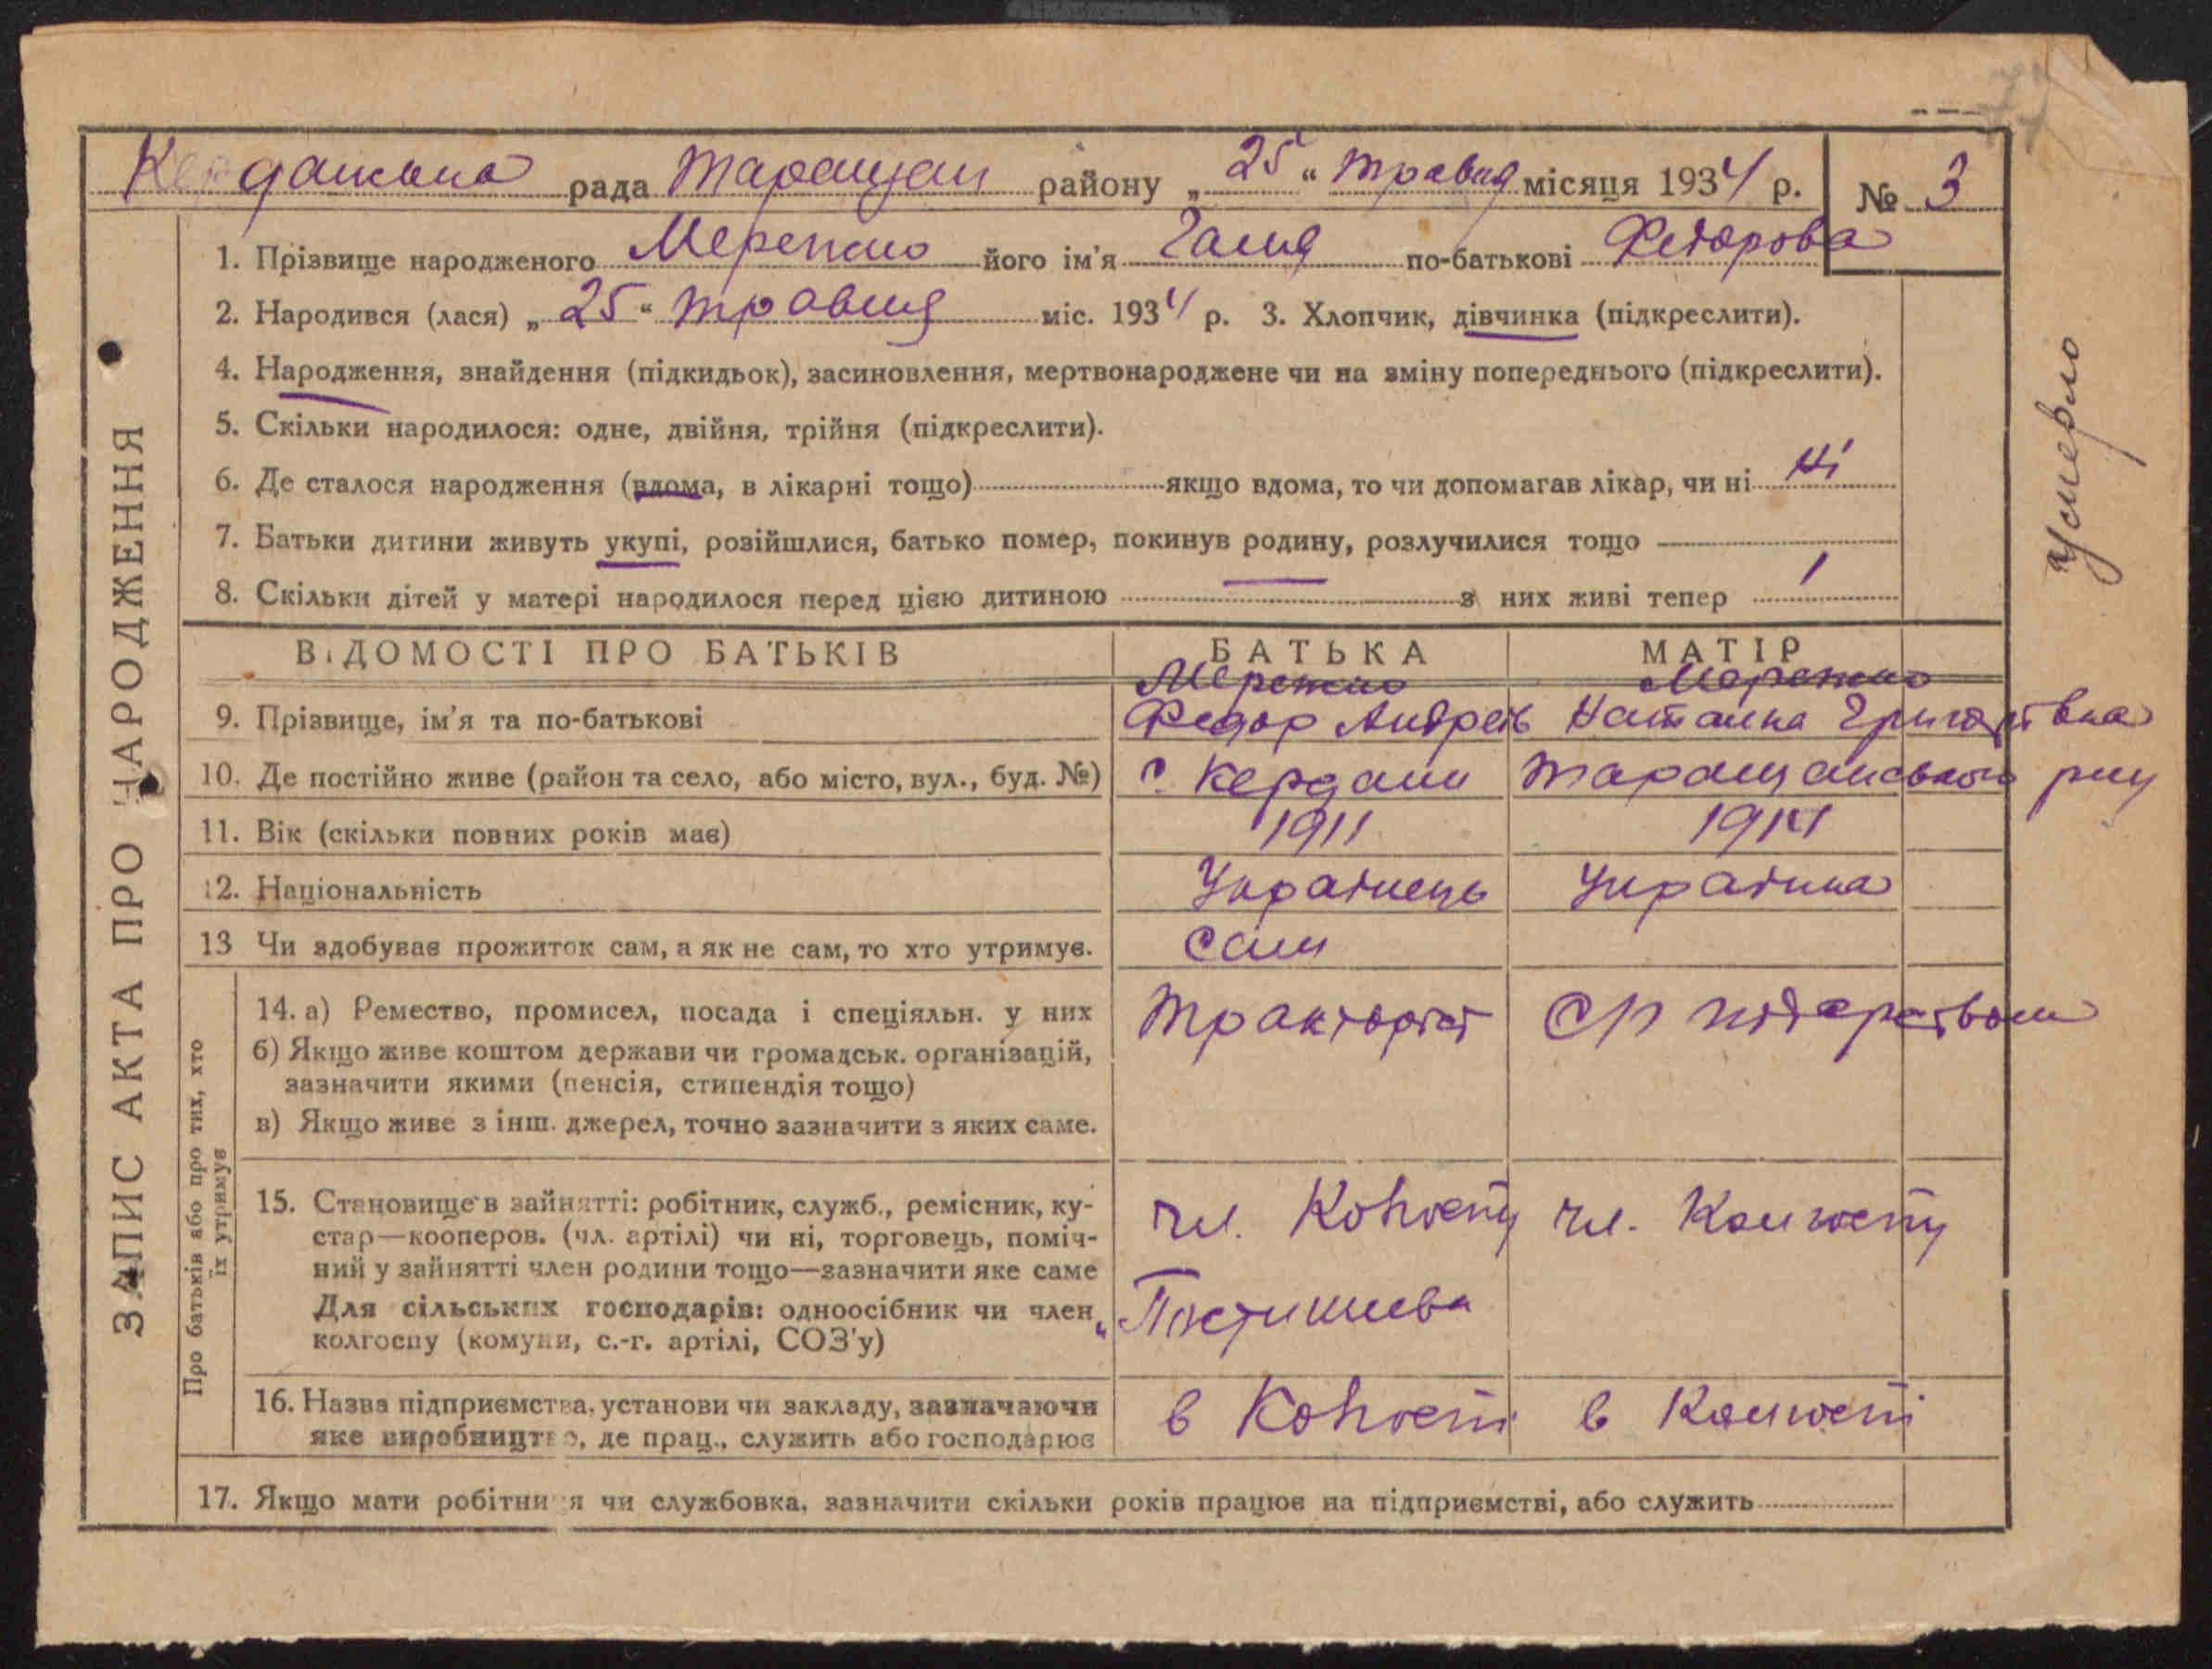 Керданська рада Таращан району „25“ травня місяця 1934 р. № 3
1. Прізвище народженого Мережко його ім'я Галя по-батькові Федорова
2. Народився (лася) „25“ травня міс. 1934 р. 3. Хлопчик, дівчинка (підкреслити).
4. Народження, знайдення (підкидьок), засиновлення, мертвонароджене чи на зміну попереднього (підкреслити).
5. Скільки народилося: одне, двійня, трійня (підкреслити).
6. Де сталося народження (вдома, в лікарні тощо) якщо вдома, то чи допомагав лікар, чи ні ні
7. Батьки дитини живуть укупі, розійшлися, батько помер, покинув родину, розлучилися тощо —
8. Скільки дітей у матері народилося перед цією дитиною — з них живі тепер 1
Умерло
ЗАПИС АКТА ПРО НАРОДЖЕННЯ
ВІДОМОСТІ ПРО БАТЬКІВ БАТЬКА МАТІР
Мережко Мережко
9. Прізвище, ім'я та по-батькові Федор Андреїв Наталка Григорівна
10. Де постійно живе (район та село, або місто, вул., буд. №) с. Кердани Таращанського р-ну
11. Вік (скільки повних років має) 1911 1914
12. Національність Українець Українка
13 Чи здобуває прожиток сам, а як не сам, то хто утримує. сам
Про батьків або про тих, хто
їх утримує
14. а) Ремество, промисел, посада і спеціяльн. у них Тракторіст
б) Якщо живе коштом держави чи громадськ. організацій,
зазначити якими (пенсія, стипендія тощо)
в) Якщо живе з інш. джерел, точно зазначити з яких саме.
15. Становище в зайнятті: робітник, служб., ремісник, ку- чл. Колгоспу чл. Колгоспу
стар—кооперов. (чл. артілі) чи ні, торговець, поміч-
ний у зайнятті член родини тощо—зазначити яке саме
Для сільських господарів: одноосібник чи член „Постишева
колгоспу (комуни, с.-г. артілі, СОЗ'у)
16. Назва підприємства, установи чи закладу, зазначаючи в Колгоспі в Колгоспі
яке виробництво, де прац., служить або господарює
17. Якщо мати робітниця чи службовка, зазначити скільки років працює на підприємстві, або служить